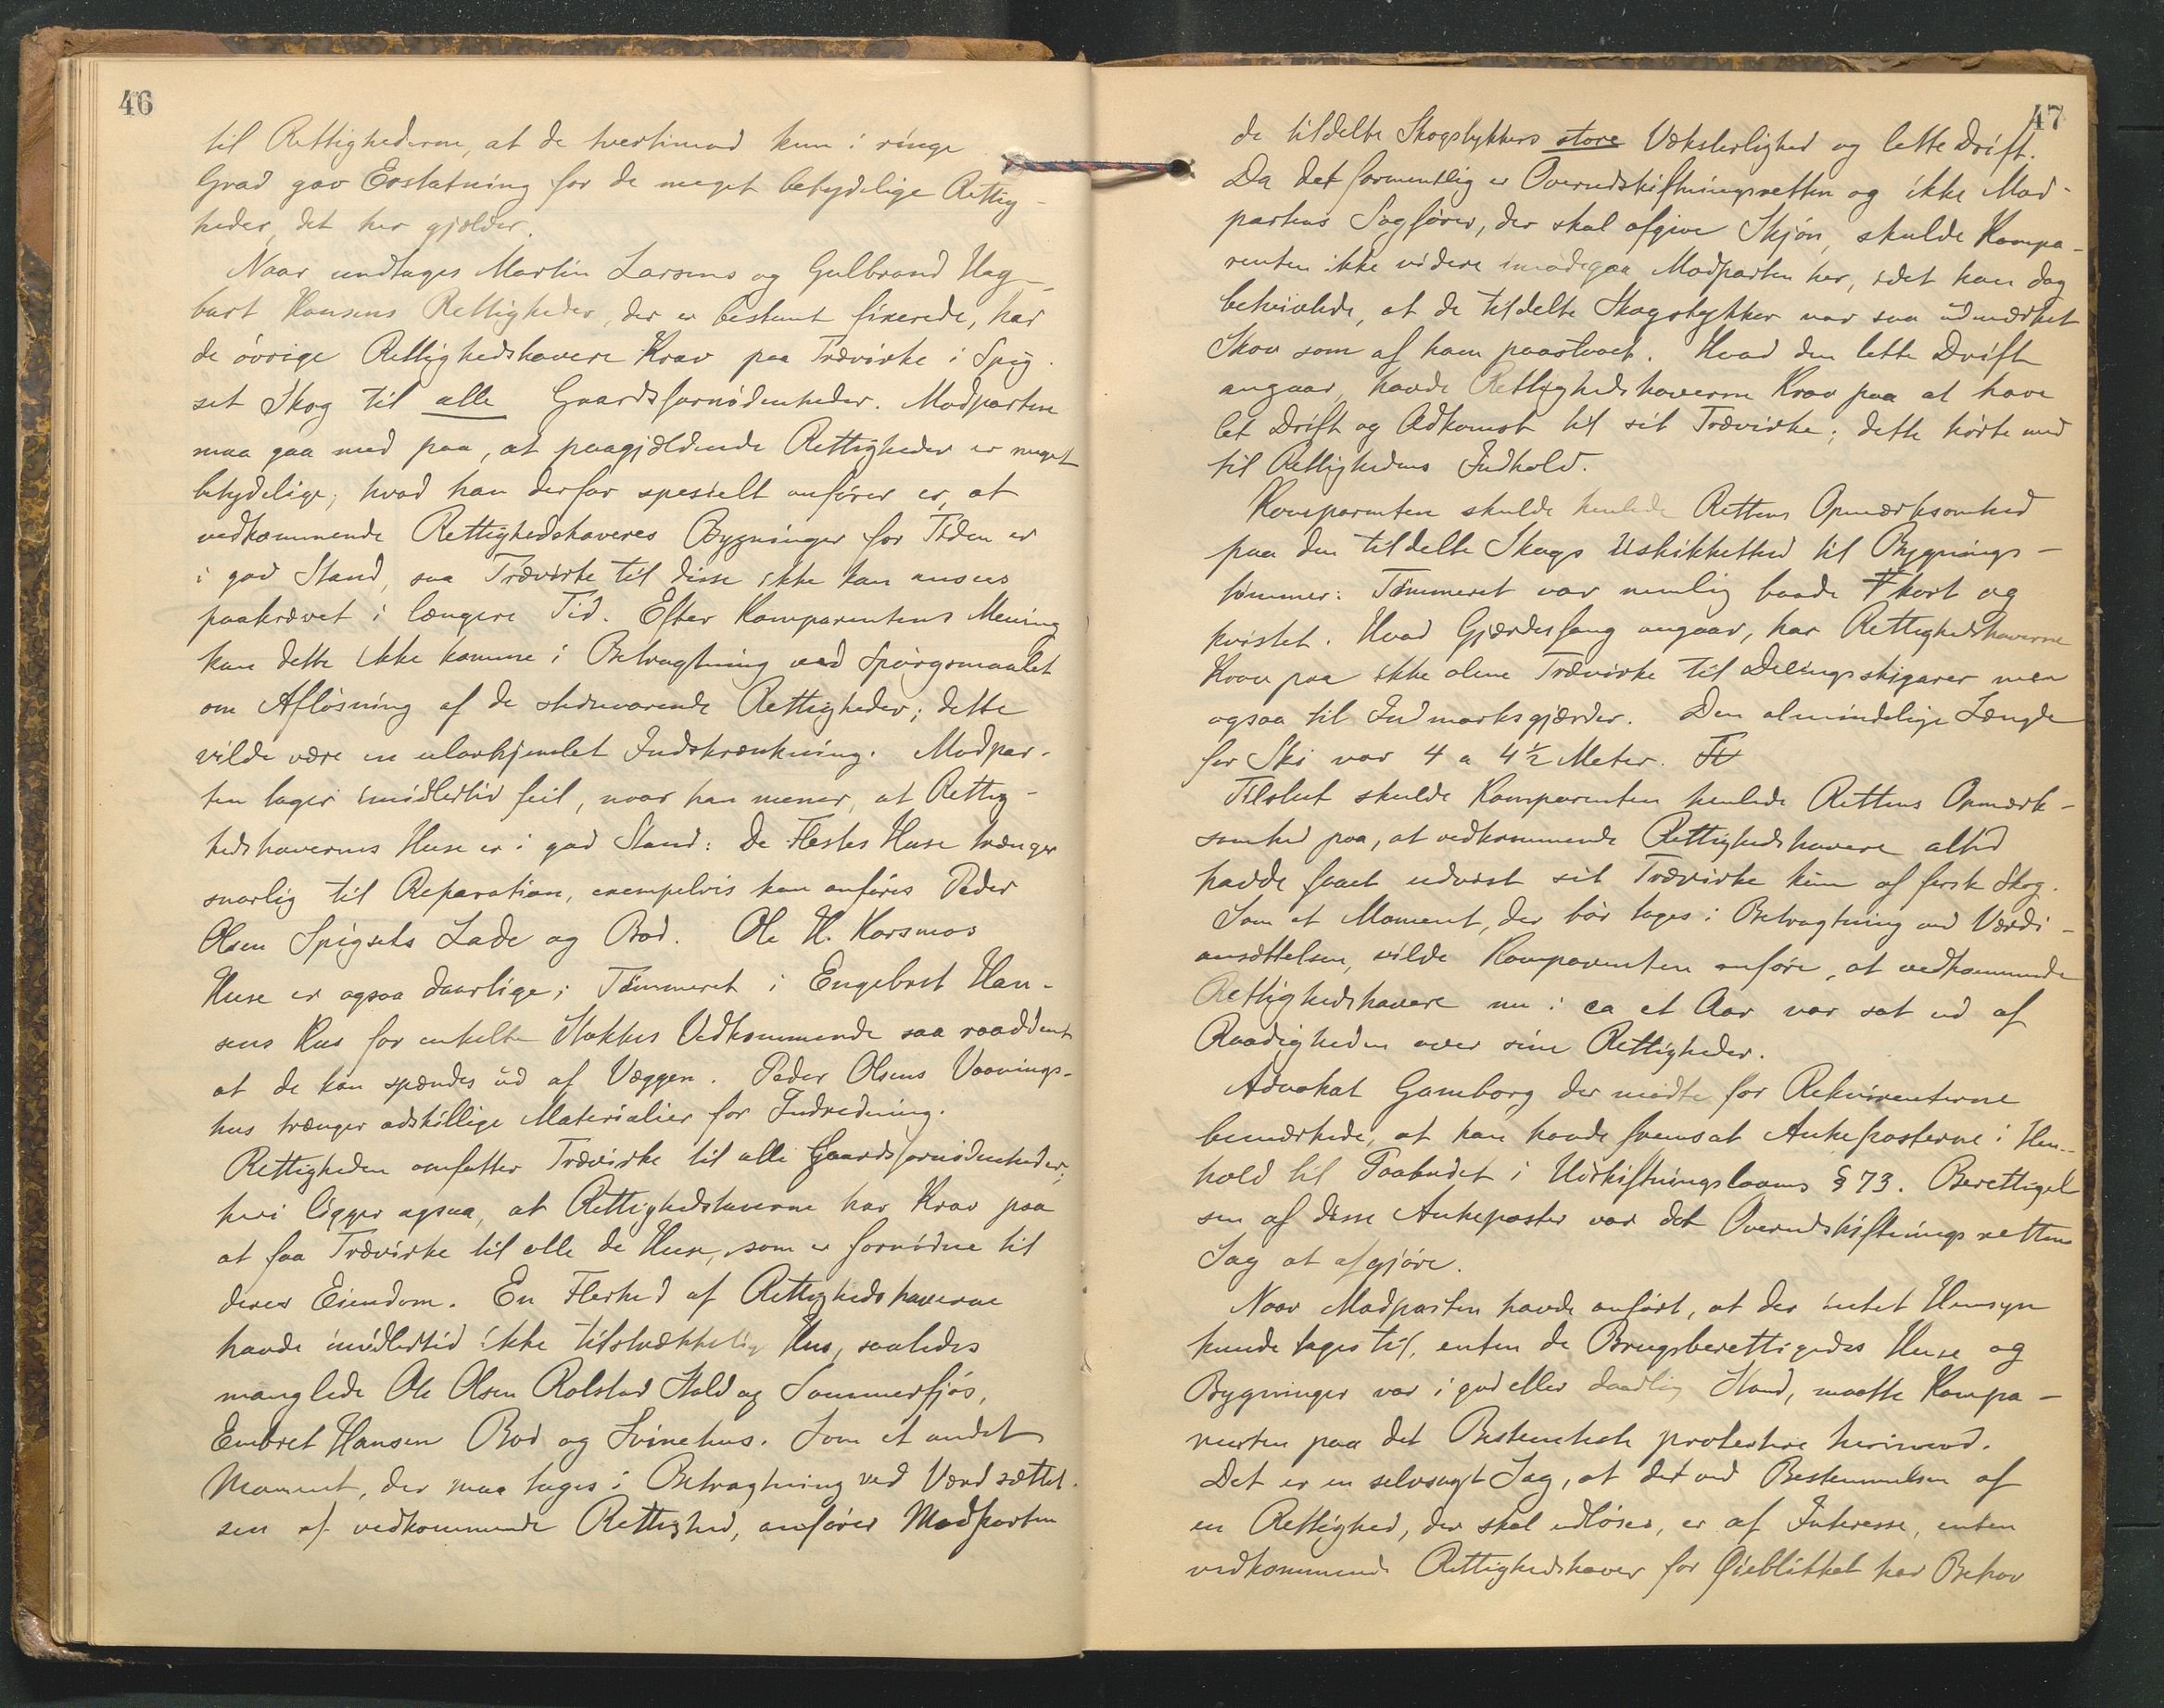 46
til Rettighederne, at de tvertimod kun i ringe
Grad gav Erstatning for de meget betydelige Rettig-
heder, det her gjælder.
Naar undtages Martin Larsens og Gulbrand Hag-
bart Hansens Rettigheder, der er bestemt fixerede, har
de øvrige Rettighedshavere Krav paa Trævirke i Spig-
set Skog til alle Gaardsfornødenheder. Modparten
maa gaa med paa, at paagjældende Rettigheder er meget
betydelige; hvad han derfor specielt anfører er, at
vedkommende Rettighedshaveres Bygninger for Tiden er
i god Stand, saa Trævirke til disse ikke kan ansees
paakrævet i længere Tid. Efter Komparentens Mening
kan dette ikke komme i Betragtning ved Spørgsmaalet
om Afløsning af de stedsevarende Rettigheder; dette
vilde være en ulovhjemlet Indskrænkning. Modpar-
ten tager imidlertid feil, naar han mener, at Rettig-
hedshavernes Huse er i god Stand: De Flestes Huse trænger
snarlig til Reparation, exempelvis kan anføres Peder
Olsen Spigsets Lade og Bod. Ole H. Korsmos
Huse er ogsaa daarlige; Tømmeret i Engebret Han-
sens Hus for enkelte Stokkes Vedkommende saa raaddent
at de kan spændes ud af Væggen. Peder Olsens Vaanings-
hus trænger adskillige Materialier for Indredning.
Rettigheden omfatter Trævirke til alle Gaardsfornødenheder;
heri ligger ogsaa, at Rettighedshaverne har Krav paa
at faa Trævirke til alle de Huse, som er fornødne til
deres Eiendom. En Flerhed af Rettighedshaverne
havde imidlertid ikke tilstrækkelig Hus, saaledes
manglede Ole Olsen Rolstad Stald og Sommerfjøs,
Embret Hansen Bod og Svinehus. Som et andet
Moment, der maa tages i Betragtning ved Værdsættel-
sen af vedkommende Rettighed, anfører Modparten
47
de tildelte Skogstykkers store Vækstlighed og lette Drift.
Da det formentlig er Overudskiftningsretten og ikke Mod-
partens Sagfører, der skal afgive Skjøn, skulde Kompa-
renten ikke videre imødegaa Modparten her, idet han dog
betvivlede, at de tildelte Skogstykker var saa udmærket
Skov som af ham paastaaet. Hvad den lette Drift
angaar, havde Rettighedshaverne Krav paa at have
let Drift og Adkomst til sit Trævirke; dette hørte med
til Rettighedens Indhold.
Komparenten skulde henlede Rettens Opmærksomhed
paa den tildelte Skogs Uskikkethed til Bygnings-
tømmer: Tømmeret var nemlig baade kort og
kvistet. Hvad Gjærdesfang angaar, har Rettighedshaverne
Krav paa ikke alene Trævirke til Delingsskigarer men
ogsaa til Indmarksgjærder. Den almindelige Længde
for Ski var 4 a 4½ Meter.
Tilslut skulde Komparenten henlede Rettens Opmærk-
somhed paa, at vedkommende Rettighedshavere altid
havde faaet udvist sit Trævirke kun af fersk Skog.
Som et Moment, der bør tages i Betragtning ved Værdi-
ansættelsen, vilde Komparenten anføre, at vedkommende
Rettighedshavere nu i ca et Aar var sat ud af
Raadigheden over sine Rettigheder.
Advokat Gamborg der mødte for Rekvirenterne
bemærkede, at han havde fremsat Ankeposterne i Hen-
hold til Paabudet i Udskiftningslovens § 73. Berettigel
sen af disse Ankeposter var det Overudskiftningsrettens
Sag at afgjøre.
Naar Modparten havde anført, at der intet Hensyn
kunde tages til, enten de Brugsberettigedes Huse og
Bygninger var i god eller daarlig Stand, maatte Kompa-
renten paa det Bestemteste protestere herimod.
Det er en selvsagt Sag, at det ved Bestemmelsen af
en Rettighed, der skal udløses, er af Interesse, enten
vedkommende Rettighedshaver for Øieblikket har Behov